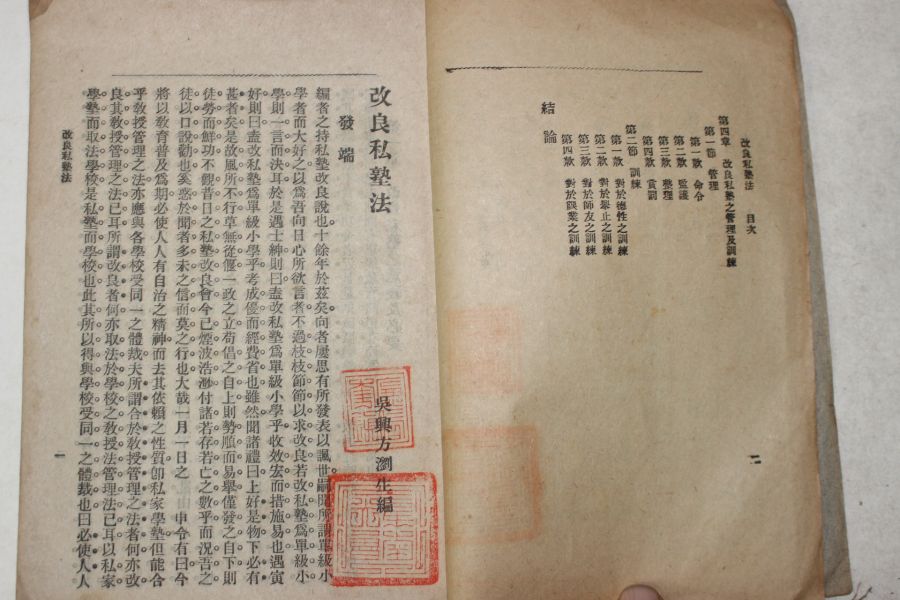 改良私塾法　目次
第四章　改良私塾之管理及訓練
第一節　管理
第一款　命令
第二款　監護
第三款　整理
第四款　賞罰
第二節　訓練
第一款　對於德性之訓練
第二款　對於舉止之訓練
第三款　對於師友之訓練
第四款　對於課業之訓練
結論
二
改良私塾法
吳興方瀏生編
發端
編者之持私塾改良說也十餘年於茲矣向者屢思有所發表以諷世嗣聞所謂單級小
學者而大好之以爲吾向日心所欲言者不過枝枝節節以求改良若改私塾爲單級小
學則一言而決耳於是遇士紳則曰盍改私塾爲單級小學乎收效宏而措施易也遇寅
好則曰盍改私塾爲單級小學乎考成優而經費省也雖然聞諸禮曰上好是物下必有
甚者矣是故風所不行草無從偃一政之立苟倡之自上則勢順而易舉僅發之自下則
徒勞而鮮功不觀昔日之私塾改良會今已煙波浩渺付諸若存若亡之數乎而況吾之
徒以口說勸也奚惑於聞者多未之信而莫之行也大哉一月一日之　申令有曰今
將以敎育普及爲期必使人人有自治之精神而去其依賴之性質卽私家學塾但能合
乎敎授管理之法亦應與各學校受同一之體裁夫所謂合於敎授管理之法者何亦改
良其敎授管理之法已耳所謂改良者何亦取法於學校之敎授法管理法已耳以私家
學塾而取法學校是私塾而學校也此其所以得與學校受同一之體裁也曰必使人人
改良私塾法
一